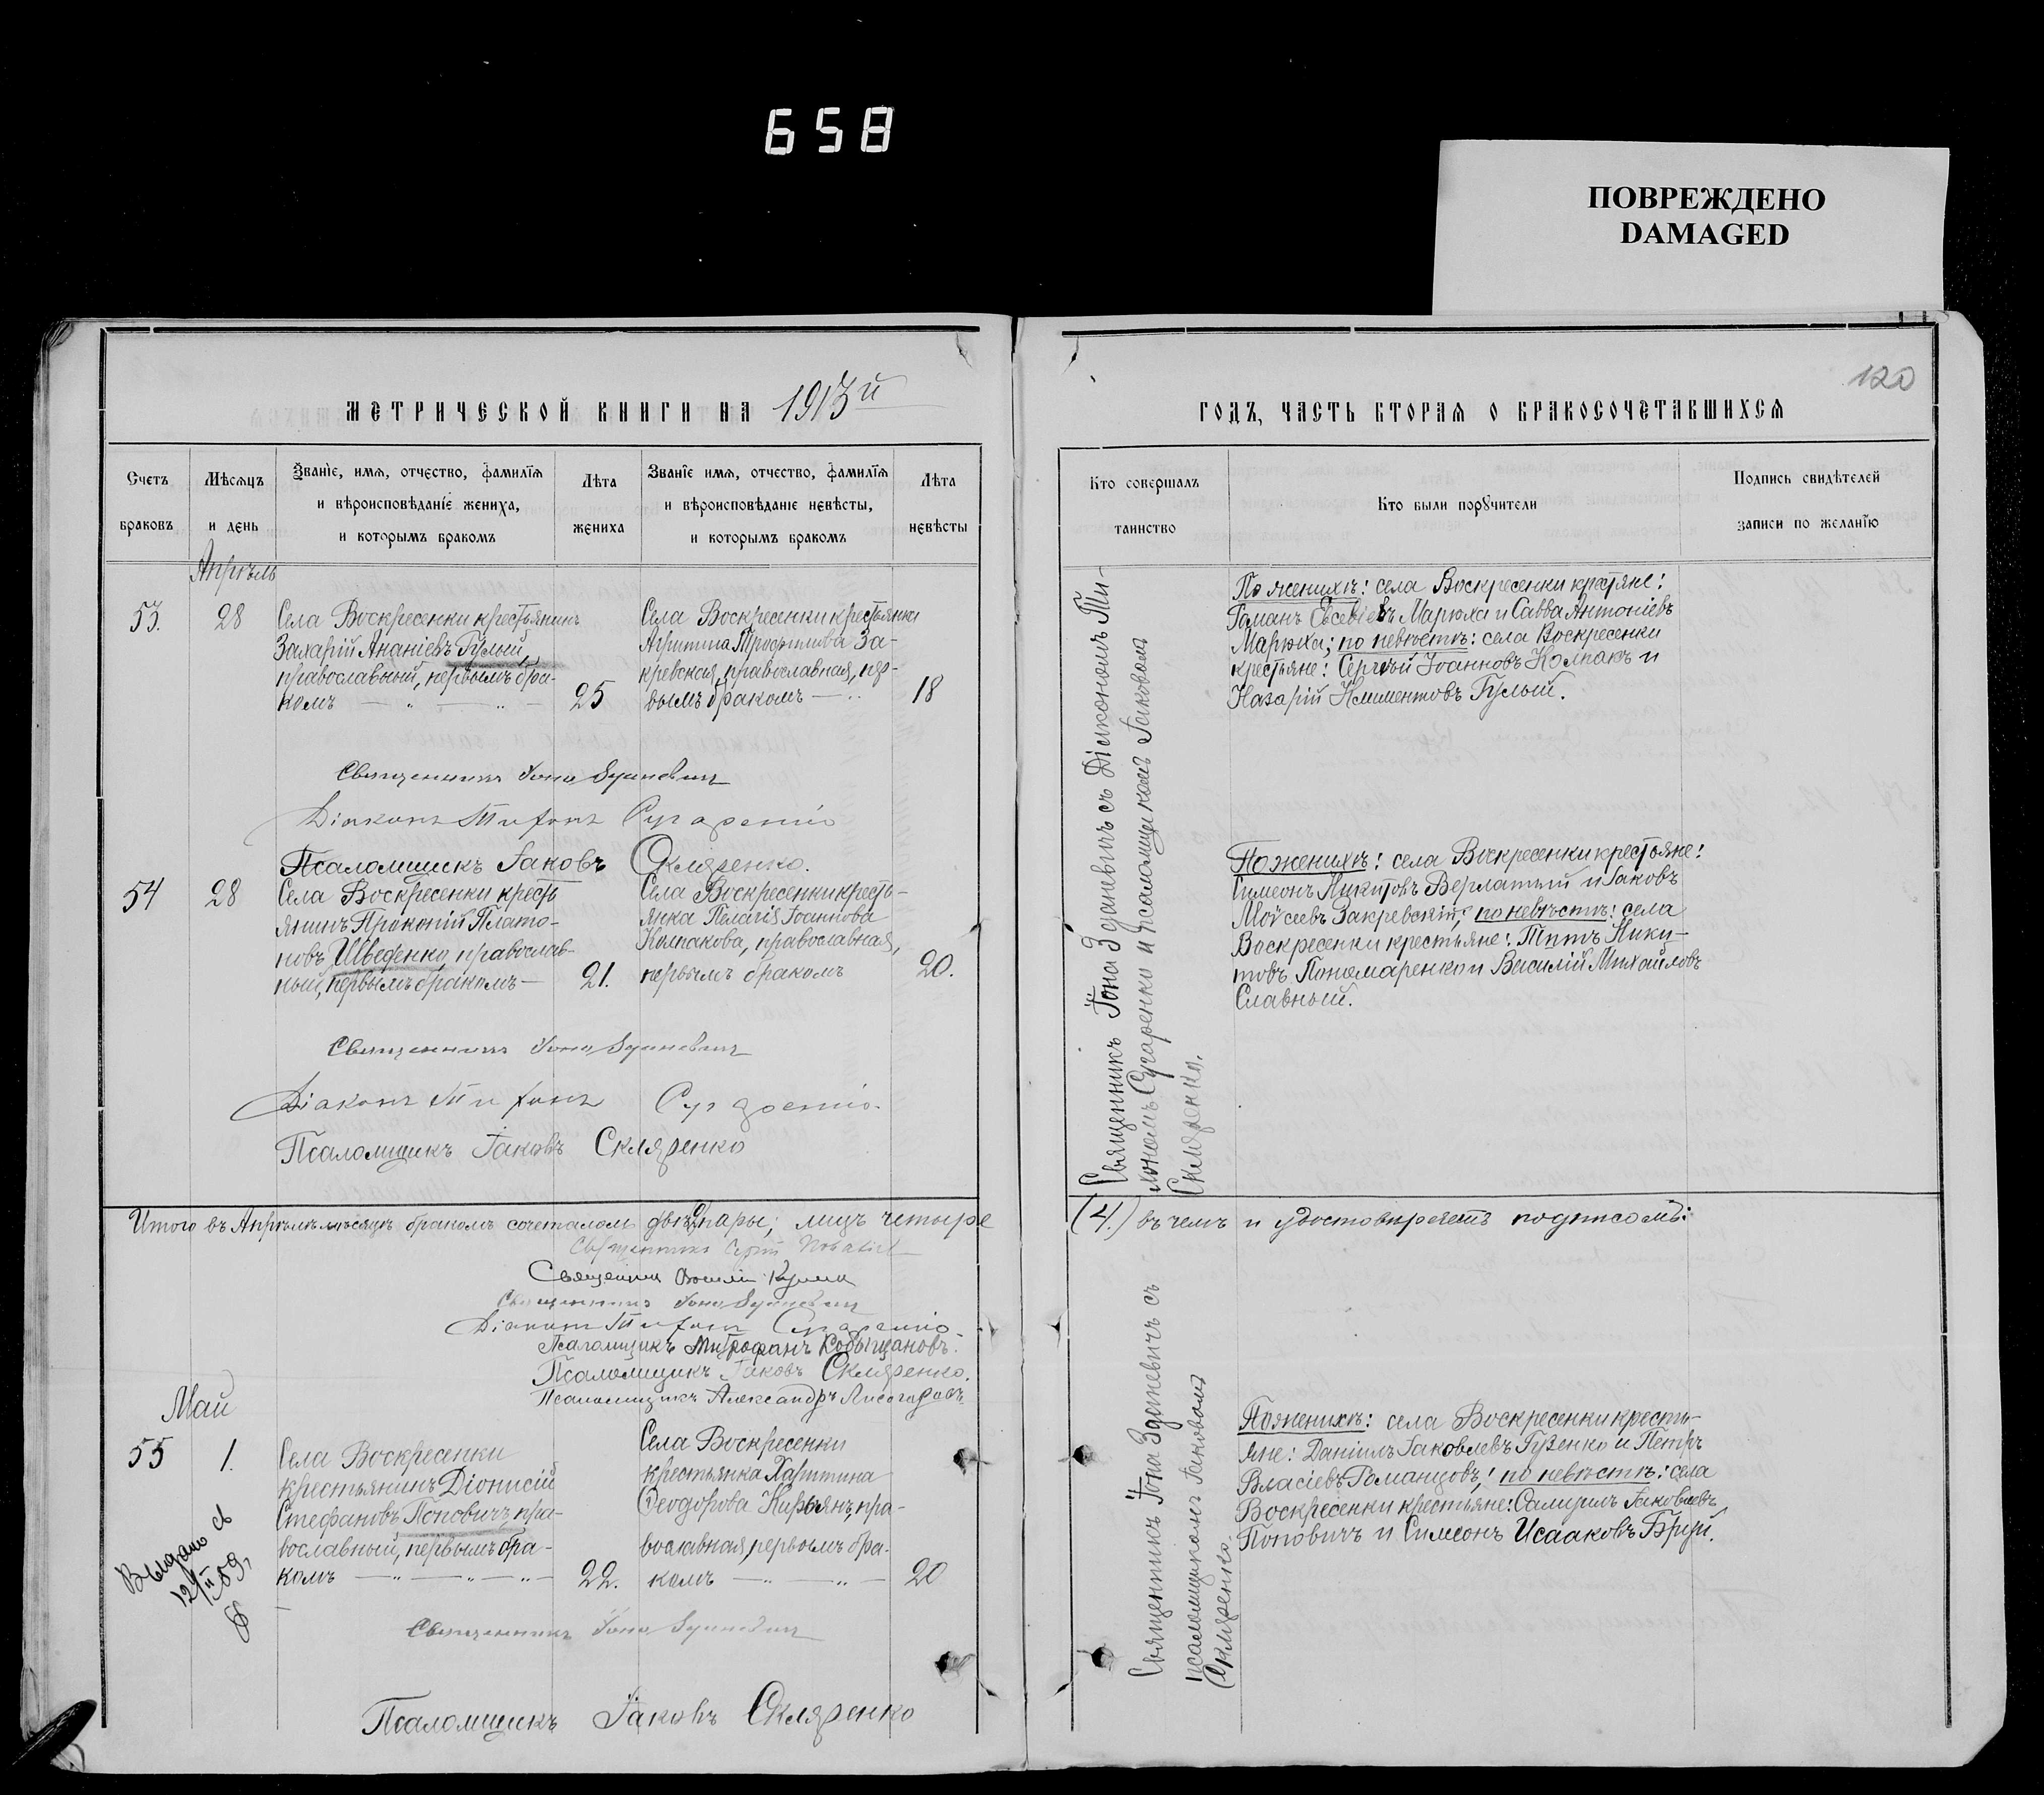 658
ПОВРЕЖДЕНО
DAMAGED
120
МЕТРИЧЕСКОЙ КНИГИ НА 1913й
ГОДЪ, ЧАСТЬ ВТОРАЯ О БРАКОСОЧЕТАВШИХСЯ
Счетъ браковъ
Мѣсяцъ и день
Званіе, имя, отчество, фамилія
и вѣроисповѣданіе жениха,
и которымъ бракомъ
Лѣта жениха
Званіе имя, отчество, фамилія
и вѣроисповѣданіе невѣсты,
и которымъ бракомъ
Лѣта невѣсты
Кто совершалъ таинство
Кто были поручители
Подпись свидѣтелей
записи по желанію
Апрѣль
53.
28
Села Воскресенки крестьянинъ
Захарій Ананіевъ Гулый,
православный, первымъ бра-
комъ
25
Села Воскресенки крестьянка
Трофимова За-
кревская, православная, пер-
вымъ бракомъ
18
Священникъ Іона Зданевич
Діаконъ Тихонъ Сугаренко
Псаломщикъ Іаковъ Скляренко.
54
28
Села Воскресенки кресть
янинъ Прокопій Плато-
новъ Шведенко, православ-
ный, первымъ бракомъ
21.
Села Воскресенки кресть-
янка Пелагія Іоаннова
Колпакова, православная,
первымъ бракомъ
20.
Священникъ Іона Зданевич
Діаконъ Тихонъ Сугаренко.
Псаломщикъ Іаковъ Скляренко
Итого въ Апрѣлѣ мѣсяцѣ бракомъ сочеталось двѣ пары; лицъ четыре
Священникъ
Священникъ
Священникъ Іона Зданевич
Діаконъ Тихонъ Сугаренко
Псаломщикъ Митрофанъ
Псаломщикъ Іаковъ Скляренко.
Псаломщикъ Александръ Лисогоровъ
Май
55
1.
Села Воскресенки
крестьянинъ Діонисій
Стефановъ Поповичъ, пра-
вославный, первымъ бра-
комъ
22.
Села Воскресенки
крестьянка Харитина
Ѳеодорова Кирьянъ, пра-
вославная, первымъ бра-
комъ
20
Выдано св
12/II 59,
Священникъ Іона Зданевич
Псаломщикъ Іаковъ Скляренко
Священникъ Іона Зданевичъ съ Діакономъ Ти-
хономъ Сугаренко и псаломщикомъ Іаковомъ
Скляренко.
По женихѣ: села Воскресенки крестяне:
Романъ Евсевіевъ Марюха и Савва Антоніевъ
Марюха; по невѣстѣ: села Воскресенки
крестьяне: Сергѣй Іоанновъ Колпакъ и
Назарій Климентовъ Гулый.
По женихѣ: села Воскресенки крестьяне:
Симеонъ Никитовъ Верлатый и Іаковъ
Моѵсеевъ Закревскій; по невѣстѣ: села
Воскресенки крестьяне: Титъ Ники-
товъ Пономаренко и Василій Михайловъ
Славный.
(4.) въ чемъ и удостовѣряетъ подписомъ:
Священникъ Іона Зданевичъ съ
псаломщикомъ Іаковомъ
Скляренко.
По женихѣ: села Воскресенки кресть-
яне: Даніилъ Іаковлевъ Гузенко и Петръ
Власіевъ Романцовъ; по невѣстѣ: села
Воскресенки крестьяне: Іаковлевъ
Поповичъ и Симеонъ Исааковъ